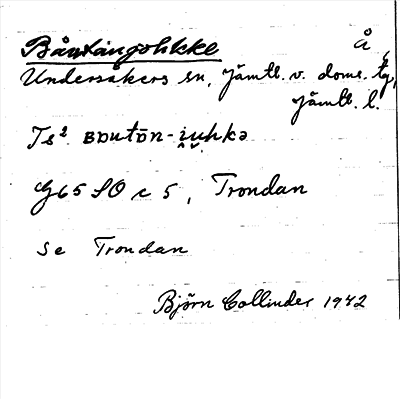 Båutångohkke Å
Undersåkers sn, Jämtl. v. doms. tg,
Jämtl. l.
Ts² ʙᴅutān-i̯uhkə
G65 SO c 5, Trondan
Se Trondan
Björn Collinder 1942